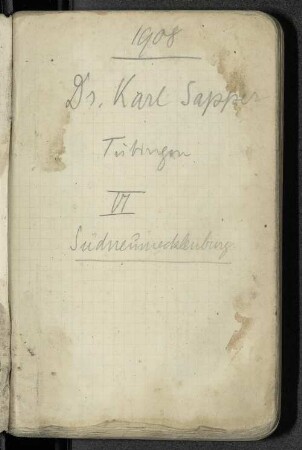 1908
Dr. Karl Sapper
Tübingen
VI
Südneumecklenburg